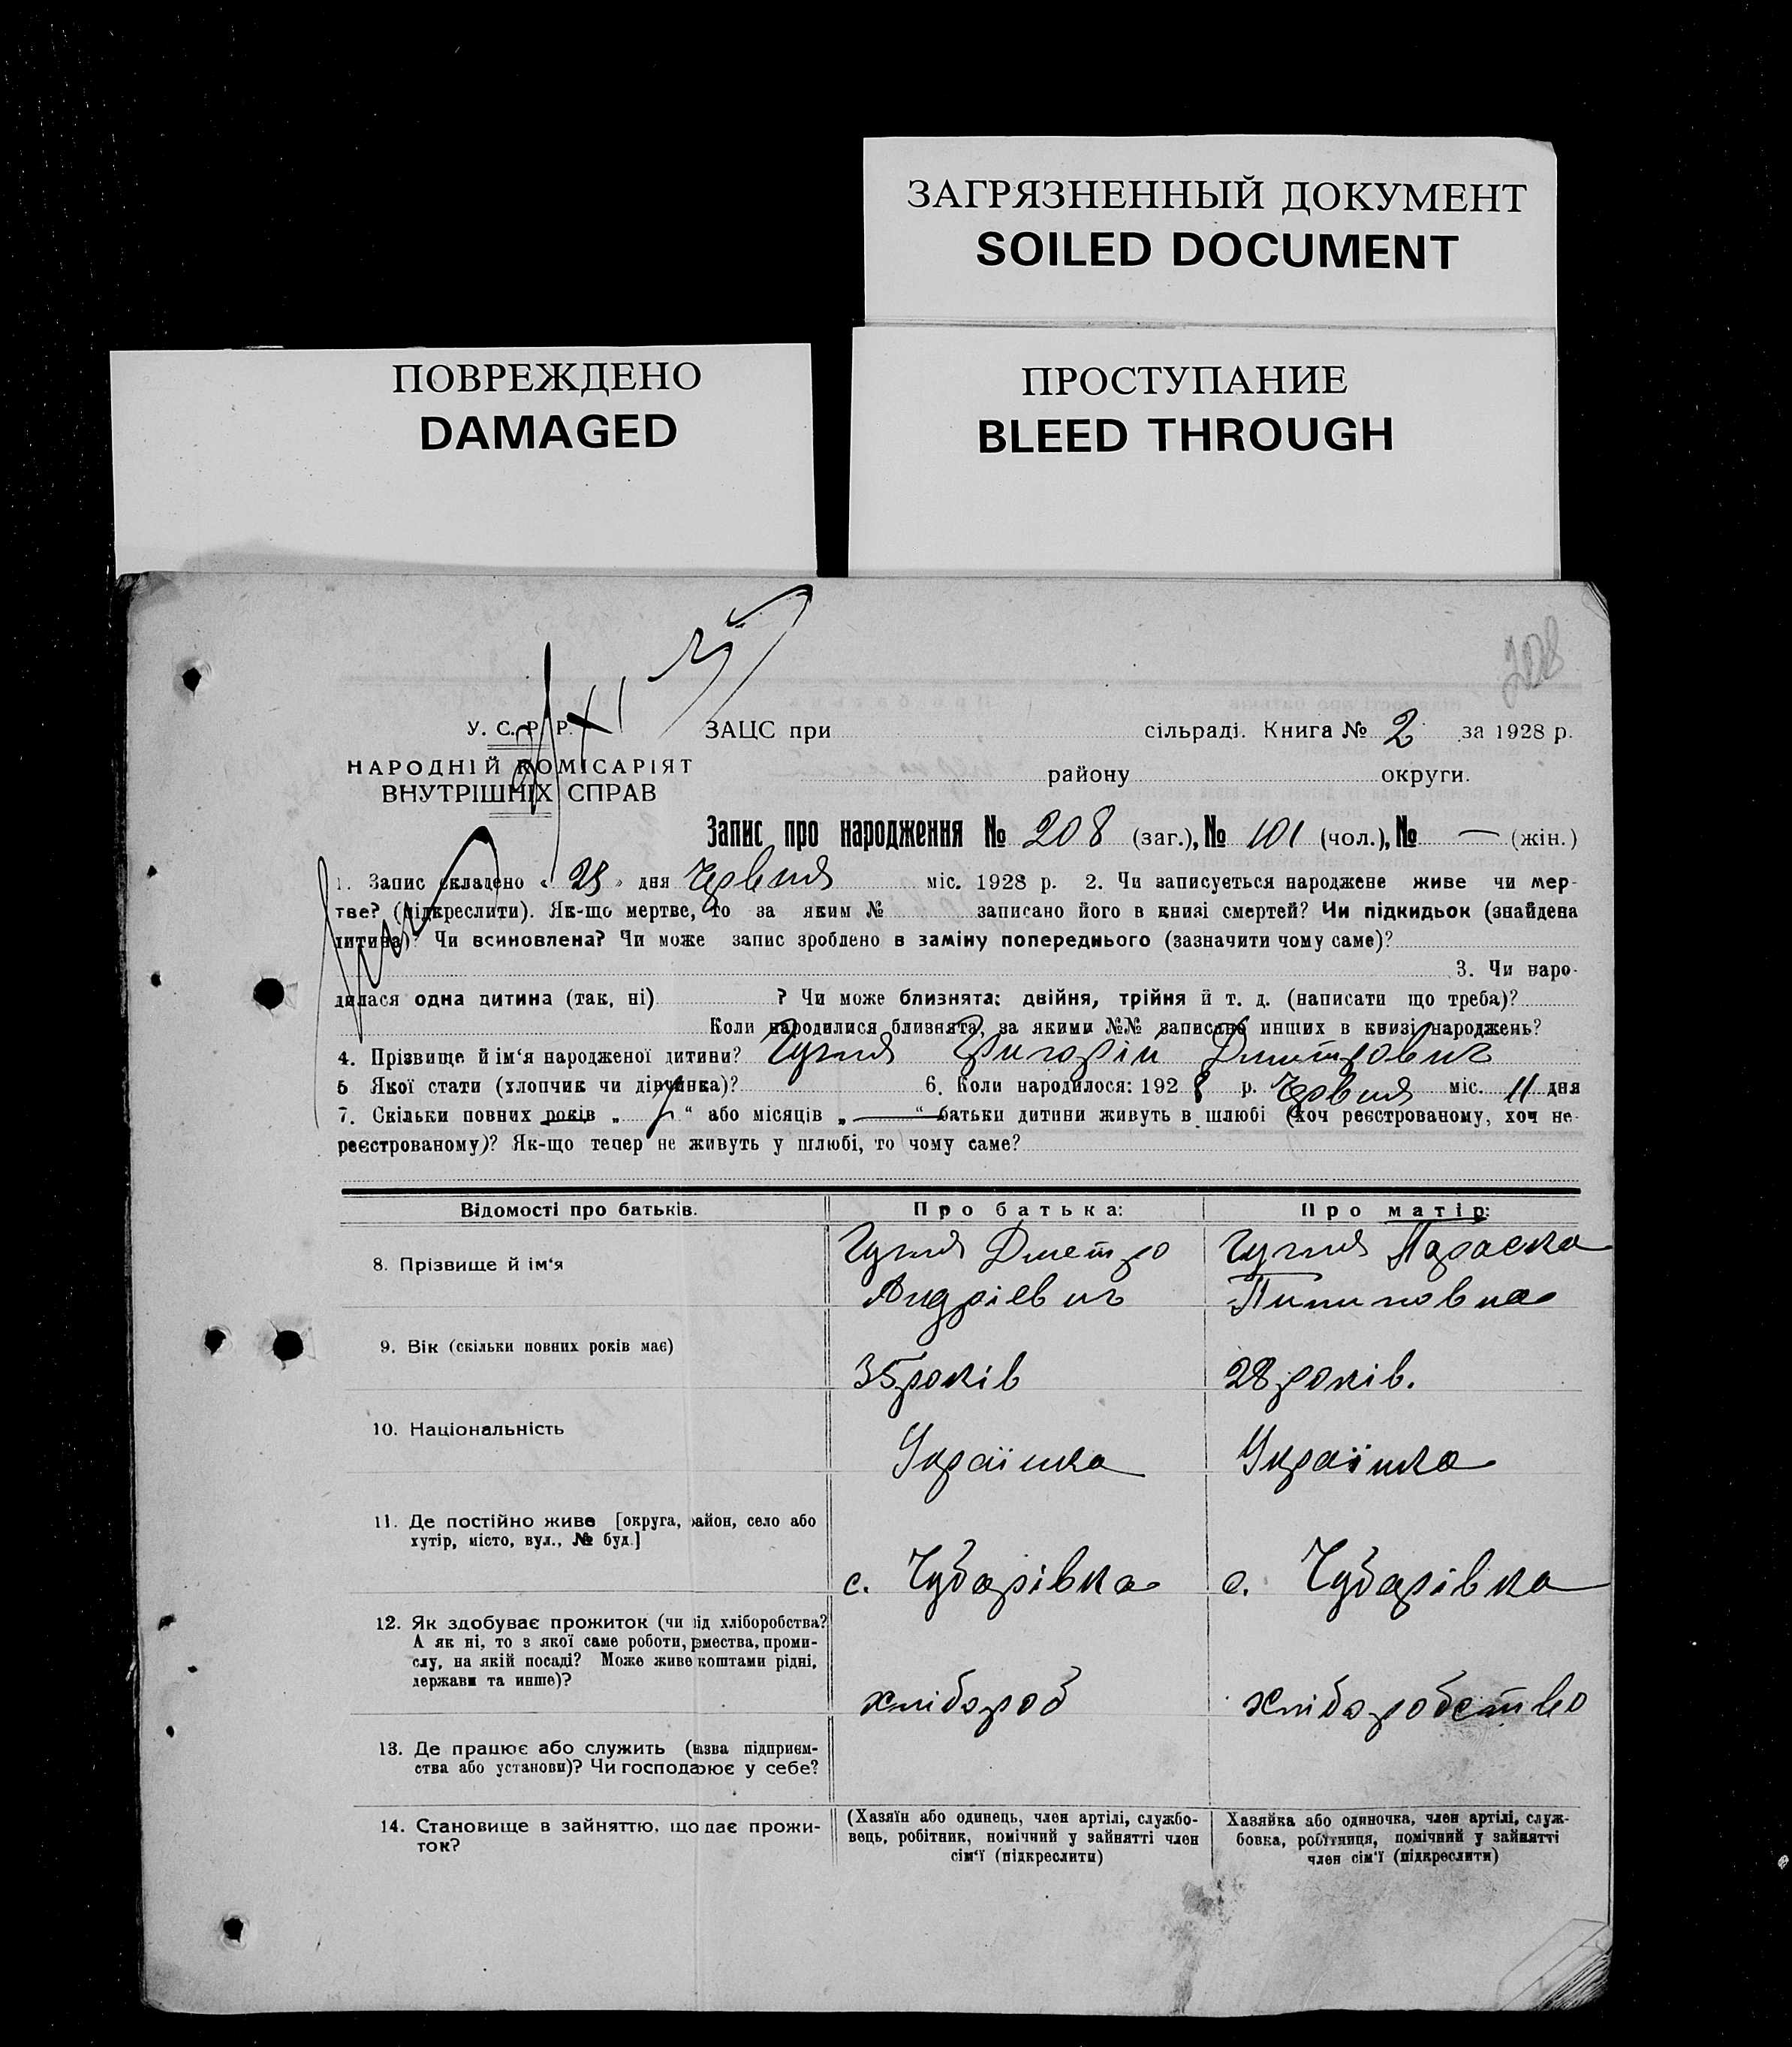 ЗАГРЯЗНЕННЫЙ ДОКУМЕНТ
SOILED DOCUMENT
ПОВРЕЖДЕНО
DAMAGED
ПРОСТУПАНИЕ
BLEED THROUGH
208
У. С. Р. Р.
ЗАЦС при сільраді. Книга № 2 за 1928 р.
НАРОДНІЙ КОМІСАРІЯТ
ВНУТРІШНІХ СПРАВ
району округи.
Запис про народження № 208 (заг.), № 101 (чол.), № — (жін.)
1. Запис складено « » дня Червня міс. 1928 р. 2. Чи записується народжене живе чи мер-
тве? (підкреслити). Як-що мертве, то за яким № записано його в книзі смертей? Чи підкидьок (знайдена
дитина)? Чи всиновлена? Чи може запис зроблено в заміну попереднього (зазначити чому саме)?
3. Чи наро-
дилася одна дитина (так, ні) ? Чи може близнята: двійня, трійня й т. д. (написати що треба)?
Коли народилися близнята, за якими №№ записано инших в книзі народжень?
4. Прізвище й ім‘я народженої дитини? Григорій Дмитрович
5 Якої стати (хлопчик чи дівчинка)? 6. Коли народилося: 1928 р. Червня міс. 11 дня
7. Скільки повних років „ “ або місяців „ — “ батьки дитини живуть в шлюбі (хоч реєстрованому, хоч не-
реєстрованому)? Як-що тепер не живуть у шлюбі, то чому саме?
Відомості про батьків. Про батька: Про матір:
8. Прізвище й ім‘я
Дметро Параска
Андрієвич Пилиповна
9. Вік (скільки повних років має)
35 років 28 років.
10. Національність
Українка Українка
11. Де постійно живе [округа, район, село або
хутір, місто, вул., № буд.]
с. Чубарівка с. Чубарівка
12. Як здобуває прожиток (чи від хліборобства?
А як ні, то з якої саме роботи, ремества, проми-
слу, на якій посаді? Може живе коштами рідні,
держави та инше)?
хлібороб хліборобство
13. Де працює або служить (назва підприєм-
ства або установи)? Чи господарює у себе?
14. Становище в зайняттю, що дає прожи-
ток?
(Хазяїн або одинець, член артілі, службо-
вець, робітник, помічний у зайнятті член
сім‘ї (підкреслити)
Хазяйка або одиночка, член артілі, служ-
бовка, робітниця, помічний у зайнятті
член сім‘ї (підкреслити)